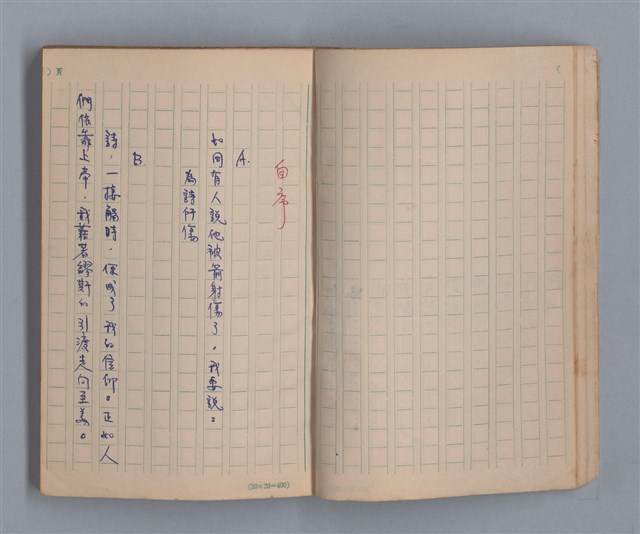 自序
A.
如同有人說他被箭射傷了，我要說：
為詩所傷
B.
詩，一接觸時，便成了我的信仰。正如人
們依靠上帝，我藉著繆斯的引渡走向至美。
(20×20=400)